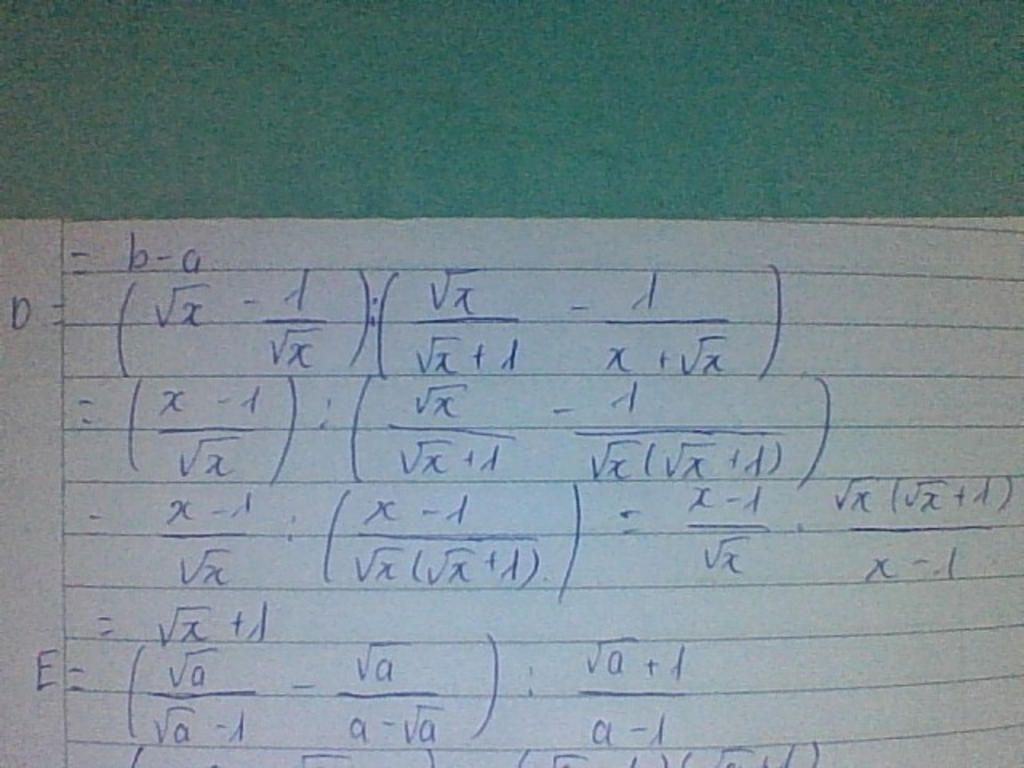 = b-a
D = (√x - 1/√x) : (√x/(√x+1) - 1/(x+√x))
= ((x-1)/√x) : (√x/(√x+1) - 1/(√x(√x+1)))
= (x-1)/√x : ((x-1)/(√x(√x+1))) = (x-1)/√x · (√x(√x+1))/(x-1)
= √x+1
E = (√a/(√a-1) - √a/(a-√a)) : (√a+1)/(a-1)